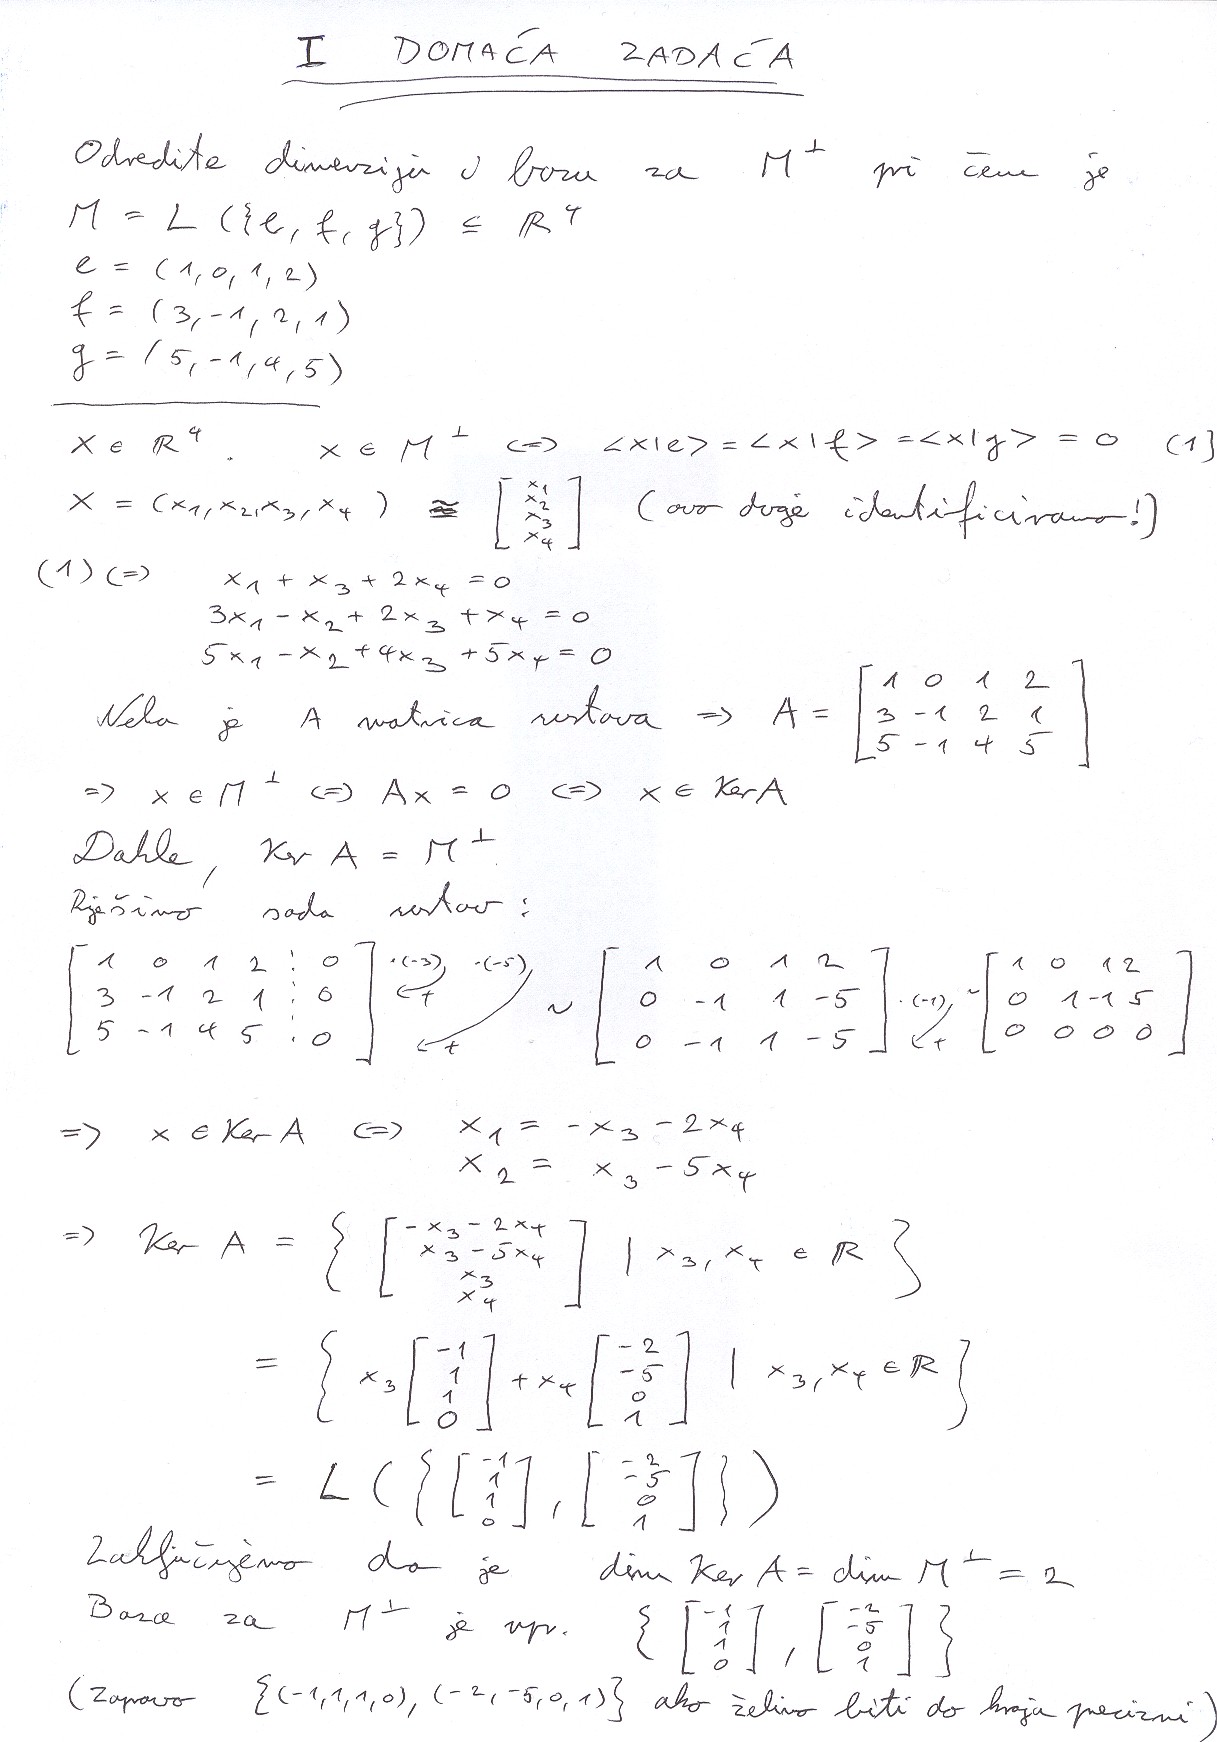 I DOMAĆA ZADAĆA
Odredite dimenziju i bazu za M^⊥ pri čemu je
M = L ({e, f, g}) ≤ ℝ^4
e = (1, 0, 1, 2)
f = (3, -1, 2, 1)
g = (5, -1, 4, 5)
x ∈ ℝ^4. x ∈ M^⊥ <=> <x|e> = <x|f> = <x|g> = 0 (1)
x = (x_1, x_2, x_3, x_4) ≅ [x_1 x_2 x_3 x_4] (ovo dvoje identificiramo!)
(1) <=> x_1 + x_3 + 2x_4 = 0
3x_1 - x_2 + 2x_3 + x_4 = 0
5x_1 - x_2 + 4x_3 + 5x_4 = 0
Neka je A matrica sustava => A = [1 0 1 2
3 -1 2 1
5 -1 4 5]
=> x ∈ M^⊥ <=> Ax = 0 <=> x ∈ Ker A
Dakle, Ker A = M^⊥.
Riješimo sada sustav:
[1 0 1 2 ⋮ 0] ·(-3) ·(-5) [1 0 1 2] [1 0 1 2]
[3 -1 2 1 ⋮ 0] + ~ [0 -1 1 -5] ·(-1) ~ [0 1 -1 5]
[5 -1 4 5 ⋮ 0] + [0 -1 1 -5] + [0 0 0 0]
=> x ∈ Ker A <=> x_1 = -x_3 - 2x_4
x_2 = x_3 - 5x_4
=> Ker A = { [-x_3 - 2x_4
x_3 - 5x_4
x_3
x_4] | x_3, x_4 ∈ ℝ }
= { x_3 [-1 1 1 0] + x_4 [-2 -5 0 1] | x_3, x_4 ∈ ℝ }
= L ({ [-1 1 1 0], [-2 -5 0 1] })
Zaključujemo da je dim Ker A = dim M^⊥ = 2
Baza za M^⊥ je npr. { [-1 1 1 0], [-2 -5 0 1] }
(Zapravo {(-1,1,1,0), (-2,-5,0,1)} ako želimo biti do kraja precizni)